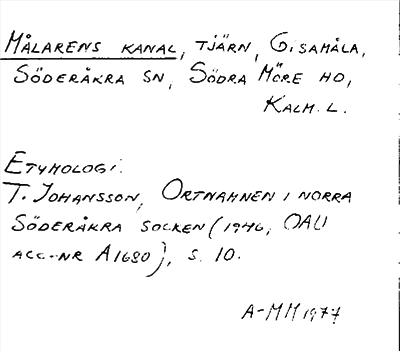 MÅLARENS KANAL, TJÄRN, GISAMÅLA,
SÖDERÅKRA SN, SÖDRA MÖRE HD,
KALM. L.
ETYMOLOGI:
T. JOHANSSON, ORTNAMNEN I NORRA
SÖDERÅKRA SOCKEN (1946, OAU
ACC.-NR A1680), S. 10.
A-MM 1977